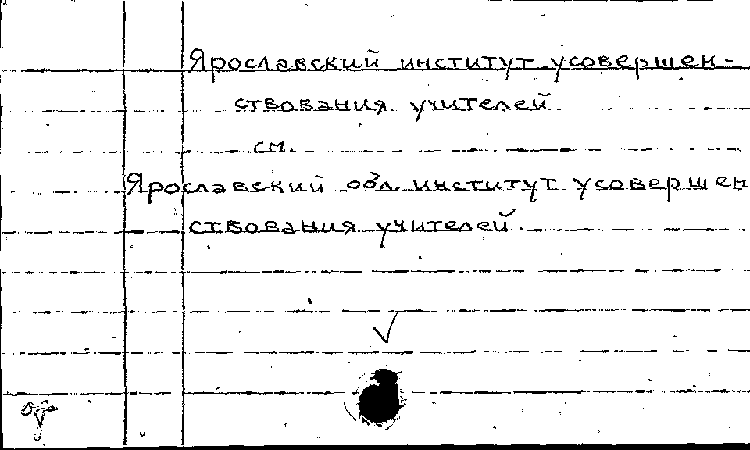 Ярославский институт усовершен-
ствования учителей
см.
Ярославский обл. институт усовершен
ствования учителей.